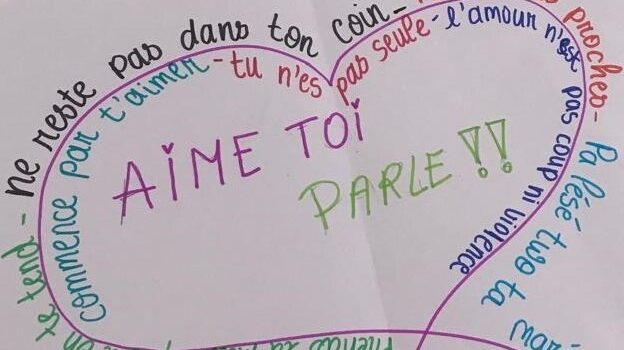 ne reste pas dans ton coin -
proches -
Pa lésé two ta
on te tend -
commence par t'aimer - tu n'es pas seule - l'amour n'est pas coup ni violence
AIME TOI
PARLE !!